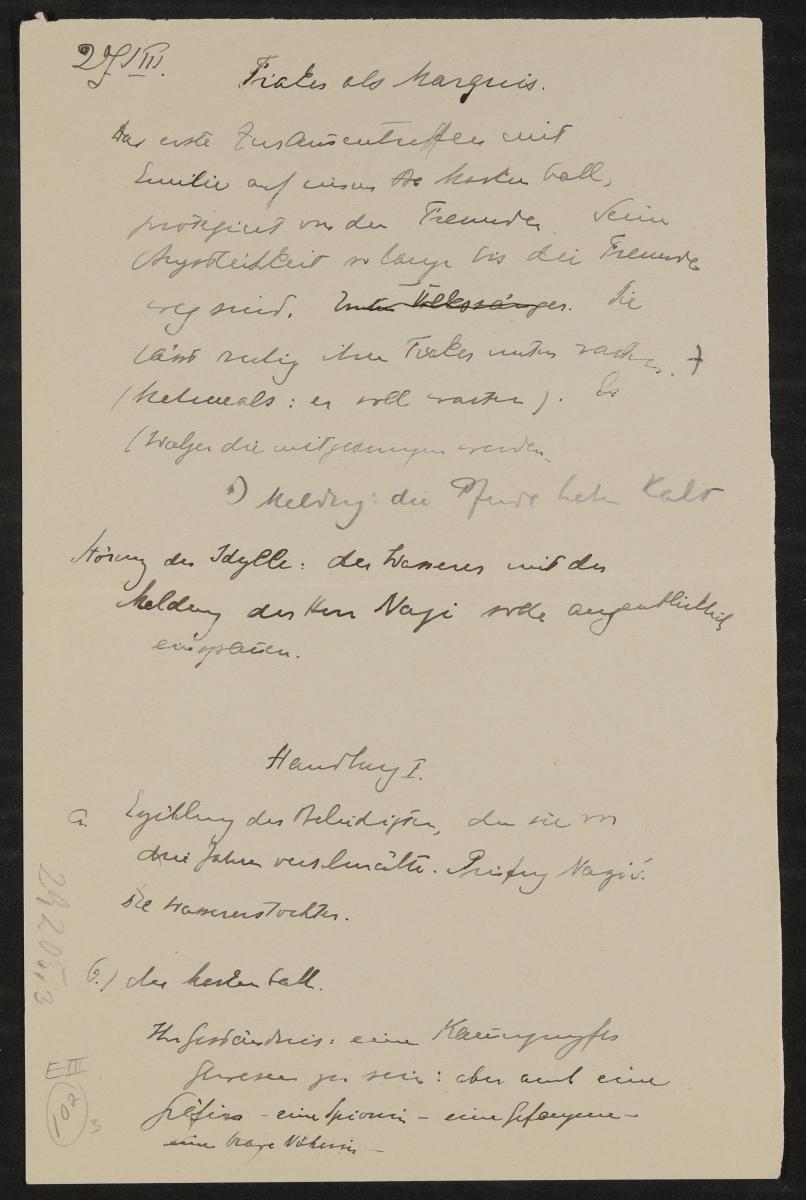 27/VIII.
Fiaker als Marquis.
Das erste Zusammentreffen mit
Emilie auf einem Maskenball,
protegiert von den Fremden. Seine
Ängstlichkeit so lange bis die Fremden
weg sind. Unter Volkssänger. Sie
lässt ruhig ihren Fiaker unten warten.
(Mehrmals: er soll warten). Es
(Walzer die mitgesungen werden
Meldung: die Pferde haben Kalt
Störung der Idylle: der Wasserer mit der
Meldung der Herr Nazi solle augenblicklich
einspannen.
Handlung I.
a. Erzählung des Beleidigten, den sie vor
drei Jahren verschmähte. Prüfung Nazi's.
Die Wassererstochter.
b.) der Maskenball.
Ihr Geständnis: eine Kammerjungfer
gewesen zu sein: aber auch eine
Gräfin – eine Spionin – eine Gefangene –
eine brave Näherin –
29205,3
EIII
102
3